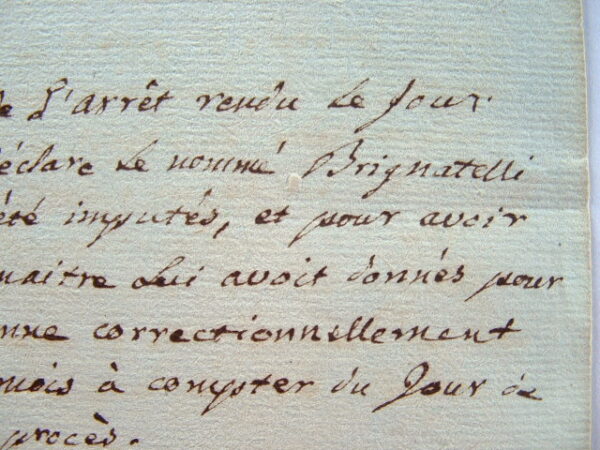 de L'arrêt rendu Le Jour
déclare Le nommé Brignatelli
été imputés, et pour avoir
maitre Lui avoit donnés pour
nne correctionnellement
mois à compter du Jour de
procès.